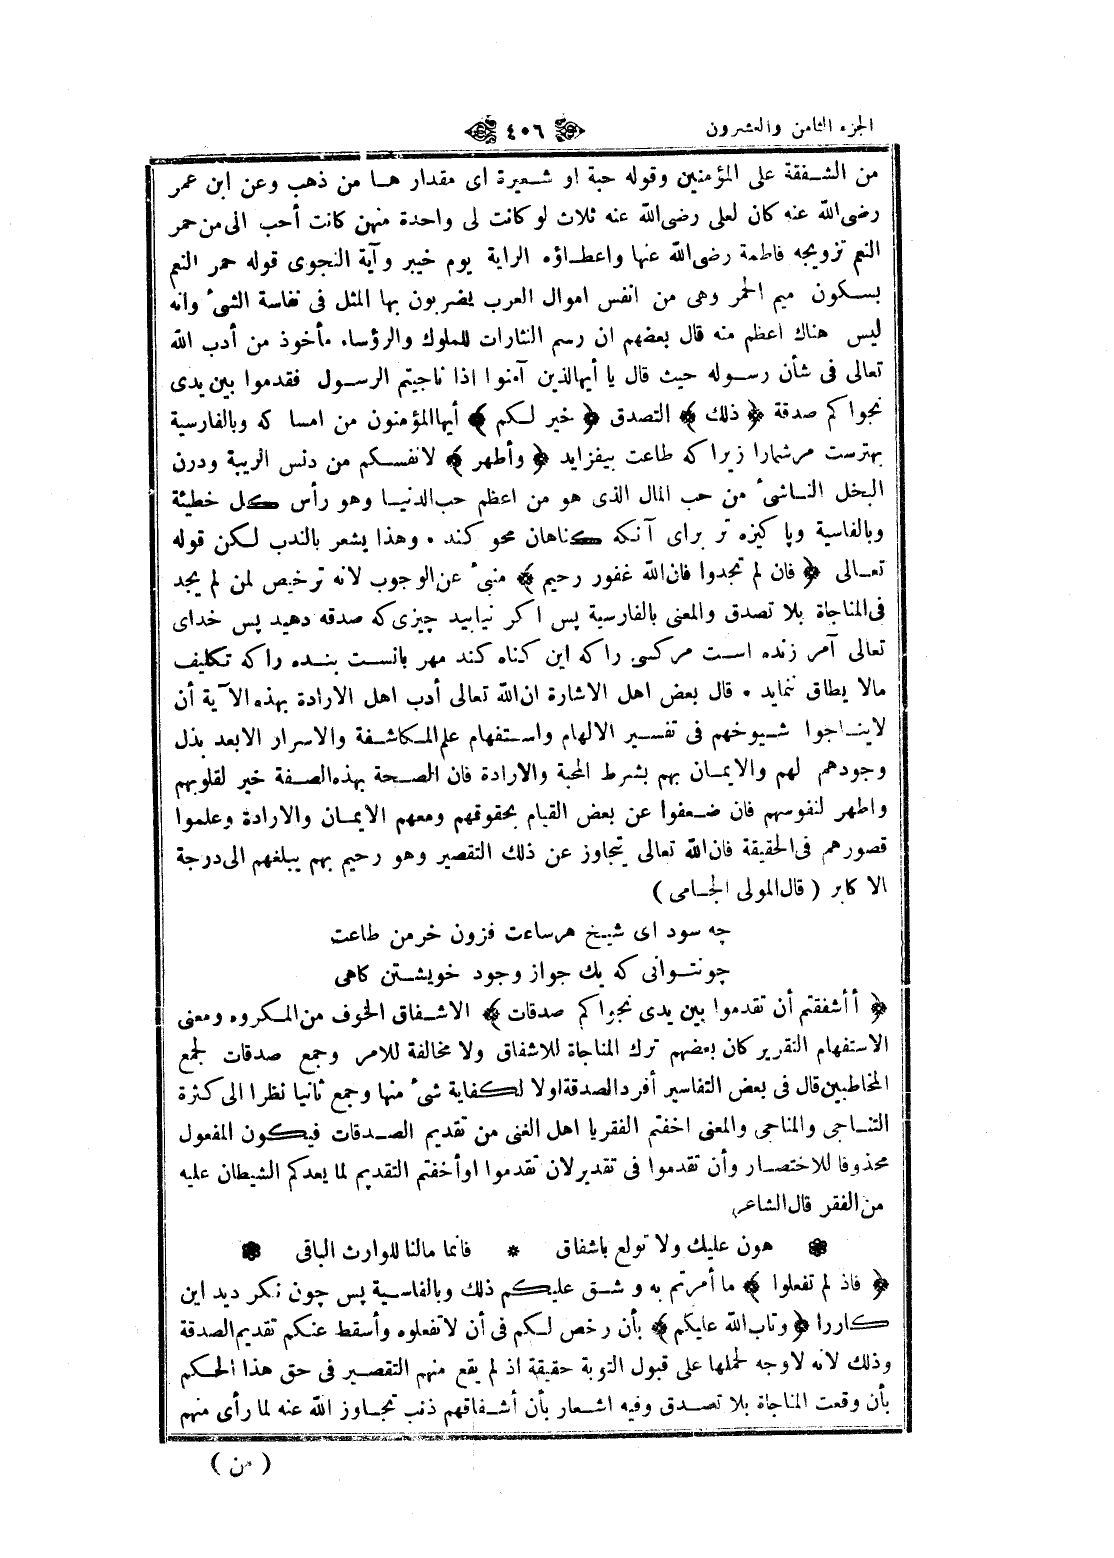 الجزء الثامن والعشرون
٤٠٦
من الشفقة على المؤمنين وقوله حبة او شعيرة اى مقدار ها من ذهب وعن ابن عمر
رضى الله عنه كان لعلى رضى الله عنه ثلاث لو كانت لى واحدة منهن كانت أحب الى من حمر
النعم تزويجه فاطمة رضى الله عنها واعطاؤه الراية يوم خيبر وآية النجوى قوله حمر النعم
بسكون ميم الحمر وهى من انفس اموال العرب يضربون بها المثل فى نفاسة الشىء وانه
ليس هناك اعظم منه قال بعضهم ان رسم النثارات للملوك والرؤساء مأخوذ من أدب الله
تعالى فى شأن رسوله حيث قال يا أيها الذين آمنوا اذا ناجيتم الرسول فقدموا بين يدى
نجواكم صدقة ﴿ ذلك ﴾ التصدق ﴿ خير لكم ﴾ أيها المؤمنون من امسا كه وبالفارسية
بهترست مرشمارا زيرا كه طاعت بيفزايد ﴿ وأطهر ﴾ لانفسكم من دنس الريبة ودرن
البخل الناشىء من حب المال الذى هو من اعظم حب الدنيا وهو رأس كل خطيئة
وبالفاسية وپا كيزه تر براى آنكه كناهان محو كند . وهذا يشعر بالندب لكن قوله
تعالى ﴿ فان لم تجدوا فان الله غفور رحيم ﴾ منبىء عن الوجوب لانه ترخيص لمن لم يجد
فى المناجاة بلا تصدق والمعنى بالفارسية پس اكر نيابيد چيزى كه صدقه دهيد پس خداى
تعالى آمر زنده است مركسى را كه اين كناه كند مهر بانست بنده را كه تكليف
مالا يطاق ننمايد . قال بعض اهل الاشارة ان الله تعالى أدب اهل الارادة بهذه الآية أن
لايناجوا شيوخهم فى تفسير الالهام واستفهام علم المكاشفة والاسرار الابعد بذل
وجودهم لهم والايمان بهم بشرط المحبة والارادة فان الصحبة بهذه الصفة خير لقلوبهم
واطهر لنفوسهم فان ضعفوا عن بعض القيام بحقوقهم ومعهم الايمان والارادة وعلموا
قصورهم فى الحقيقة فان الله تعالى يتجاوز عن ذلك التقصير وهو رحيم بهم يبلغهم الى درجة
الا كابر ( قال المولى الجامى )
چه سود اى شيخ هرساعت فزون خرمن طاعت
چونتوانى كه يك جواز وجود خويشتن كاهى
﴿ أأشفقتم أن تقدموا بين يدى نجواكم صدقات ﴾ الاشفاق الخوف من المكروه ومعنى
الاستفهام التقرير كان بعضهم ترك المناجاة للاشفاق ولا مخالفة للامر وجمع صدقات لجمع
المخاطبين قال فى بعض التفاسير أفرد الصدقة اولا لكفاية شىء منها وجمع ثانيا نظرا الى كثرة
التناجى والمناجى والمعنى اخفتم الفقر يا اهل الغنى من تقديم الصدقات فيكون المفعول
محذوفا للاختصار وأن تقدموا فى تقدير لان تقدموا اوأخفتم التقديم لما يعدكم الشيطان عليه
من الفقر قال الشاعر
هون عليك ولا تولع باشفاق * فانما مالنا للوارث الباقى
﴿ فاذ لم تفعلوا ﴾ ما أمرتم به و شق عليكم ذلك وبالفاسية پس چون نكر ديد اين
كاررا ﴿ وتاب الله عليكم ﴾ بأن رخص لكم فى أن لا تفعلوه وأسقط عنكم تقديم الصدقة
وذلك لانه لاوجه لحملها على قبول التوبة حقيقة اذ لم يقع منهم التقصير فى حق هذا الحكم
بأن وقعت المناجاة بلا تصدق وفيه اشعار بأن أشفاقهم ذنب تجاوز الله عنه لما رأى منهم
( من )